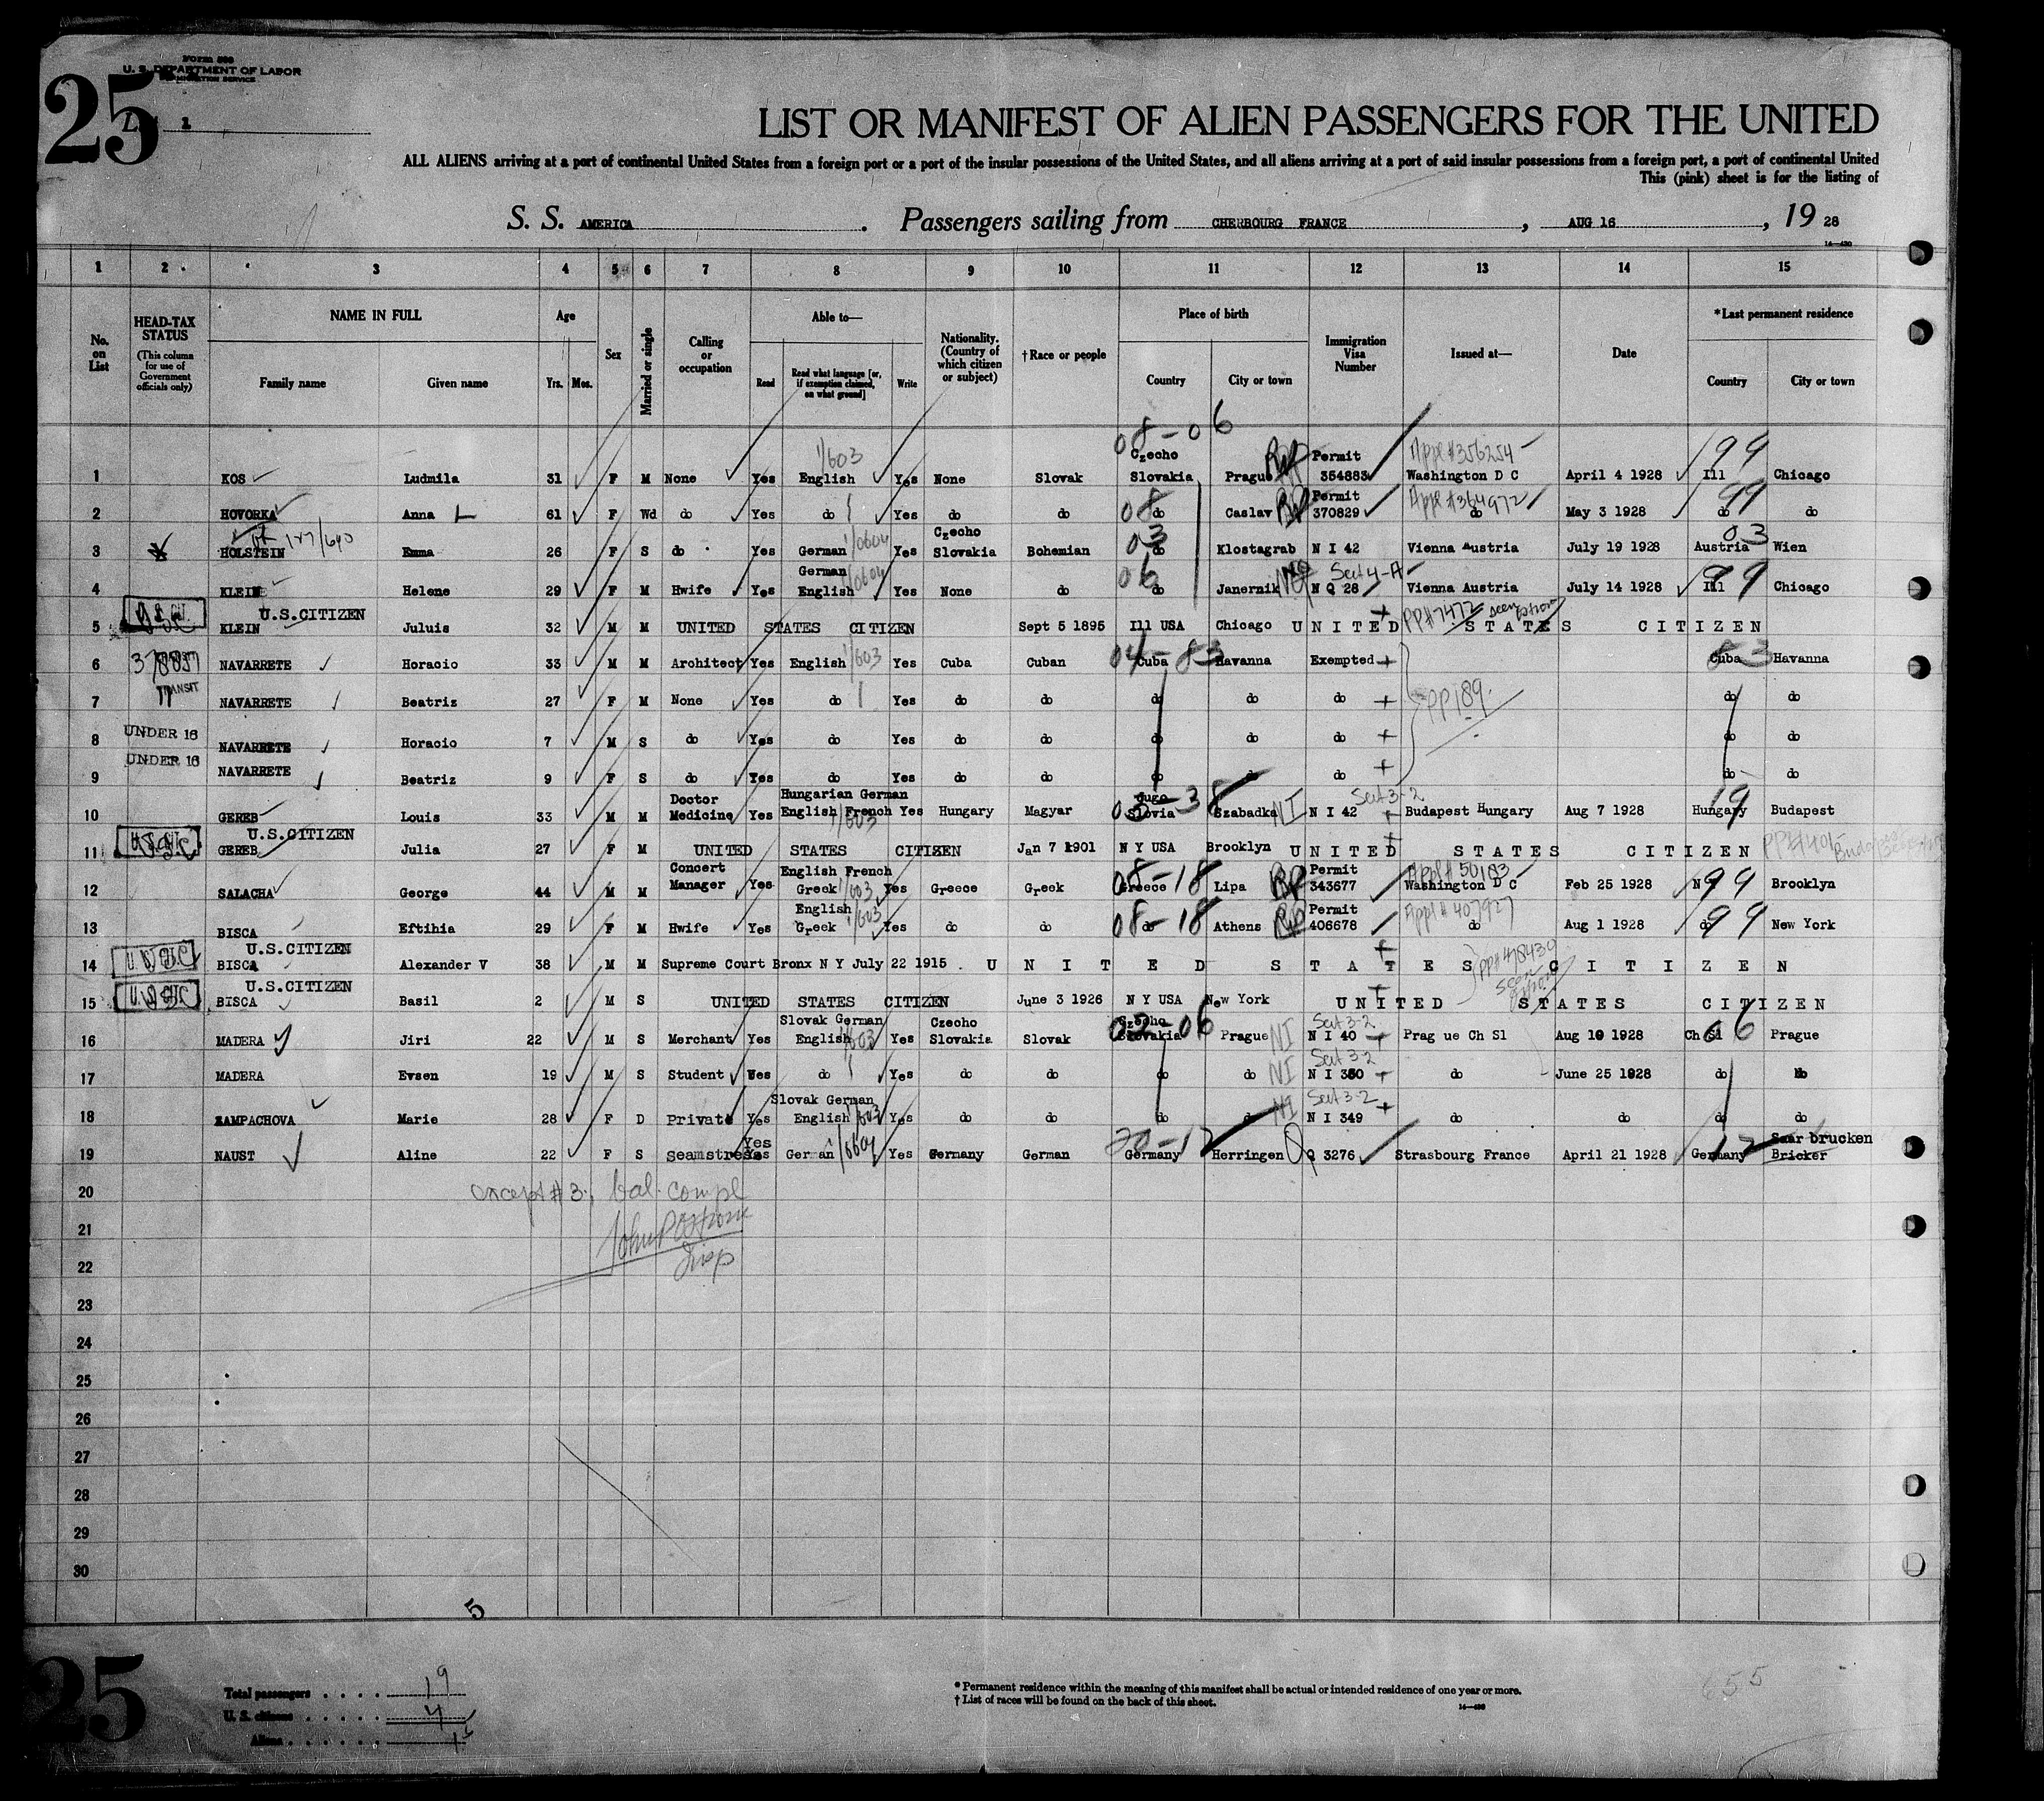 Form 500
U. S. DEPARTMENT OF LABOR
IMMIGRATION SERVICE
25
1
LIST OR MANIFEST OF ALIEN PASSENGERS FOR THE UNITED
ALL ALIENS arriving at a port of continental United States from a foreign port or a port of the insular possessions of the United States, and all aliens arriving at a port of said insular possessions from a foreign port, a port of continental United
This (pink) sheet is for the listing of
S. S. AMERICA. Passengers sailing from CHERBOURG FRANCE, AUG 16, 19 28
1 2 3 4 5 6 7 8 9 10 11 12 13 14 15
No. on List
HEAD-TAX STATUS (This column for use of Government officials only)
NAME IN FULL Family name Given name
Age Yrs. Mos.
Sex
Married or single
Calling or occupation
Able to— Read Read what language [or, if exemption claimed, on what ground] Write
Nationality. (Country of which citizen or subject)
†Race or people
Place of birth Country City or town
Immigration Visa Number
Issued at—
Date
*Last permanent residence Country City or town
08-06
1 KOS Ludmila 31 F M None Yes English 1/603 Yes None Slovak Czecho Slovakia Prague RP Permit 354883 Appl #356254 Washington D C April 4 1928 Ill 99 Chicago
2 HOVORKA Anna 61 F Wd do Yes do Yes do do 08 do Caslav RP Permit 370829 Appl #364972 do May 3 1928 99 do do
3 HOLSTEIN Emma 26 F S do Yes German 1/0604 Yes Czecho Slovakia Bohemian 03 do Klostagrab N I 42 Vienna Austria July 19 1928 Austria 03 Wien
4 KLEIN Helene 29 F M Hwife Yes German English 1/0604 Yes None do 06 do Janernik NQ N Q 28 Sect 4-A Vienna Austria July 14 1928 Ill 99 Chicago
5 U.S.CITIZEN KLEIN Juluis 32 M M UNITED STATES CITIZEN Sept 5 1895 Ill USA Chicago UNITED STATES CITIZEN PP#7472
6 NAVARRETE Horacio 33 M M Architect Yes English 1/603 Yes Cuba Cuban 04-83 Cuba Havanna Exempted Cuba 83 Havanna
7 TRANSIT NAVARRETE Beatriz 27 F M None Yes do Yes do do do do do PP189. do do
8 UNDER 16 NAVARRETE Horacio 7 M S do Yes do Yes do do do do do do do
9 UNDER 16 NAVARRETE Beatriz 9 F S do Yes do Yes do do do do do do do
10 GEREB Louis 33 M M Doctor Medicine Yes Hungarian German English French 1/603 Yes Hungary Magyar Jugo Slovia Szabadka NI N I 42 Sect 3-2 Budapest Hungary Aug 7 1928 Hungary 19 Budapest
11 U.S.CITIZEN GEREB Julia 27 F M UNITED STATES CITIZEN Jan 7 1901 N Y USA Brooklyn UNITED STATES CITIZEN
12 SALACHA George 44 M M Concert Manager Yes English French Greek 1/603 Yes Greece Greek 08-18 Greece Lipa RP Permit 343677 Washington D C Feb 25 1928 N 99 Brooklyn
13 BISCA Eftihia 29 F M Hwife Yes English Greek 1/603 Yes do do 08-18 do Athens RP Permit 406678 Appl #407927 do Aug 1 1928 do 99 New York
14 U.S.CITIZEN BISCA Alexander V 38 M M Supreme Court Bronx N Y July 22 1915 . UNITED STATES CITIZEN PP#478439
15 U.S.CITIZEN BISCA Basil 2 M S UNITED STATES CITIZEN June 3 1926 N Y USA New York UNITED STATES CITIZEN
16 MADERA Jiri 22 M S Merchant Yes Slovak German English 1/603 Yes Czecho Slovakia Slovak 02-06 Czecho Slovakia Prague NI N I 40 Sect 3-2 Prag ue Ch Sl Aug 10 1928 Ch Sl 06 Prague
17 MADERA Evsen 19 M S Student Yes do Yes do do do do NI N I 350 Sect 3-2 do June 25 1928 do do
18 ZAMPACHOVA Marie 28 F D Private Yes Slovak German English 1/603 Yes do do do do NI N I 349 Sect 3-2 do do do do
19 NAUST Aline 22 F S Seamstress Yes Yes German 1/0604 Yes Germany German 20-12 Germany Herringen Q Q 3276 Strasbourg France April 21 1928 Germany 12 Saar brucken Bricker
20 except #3, bal. compl
21
22 Insp
23
24
25
26
27
28
29
30
5
25
Total passengers . . . . 19
U. S. citizens . . . . . 4
Aliens . . . . . . 15
* Permanent residence within the meaning of this manifest shall be actual or intended residence of one year or more.
† List of races will be found on the back of this sheet.
655